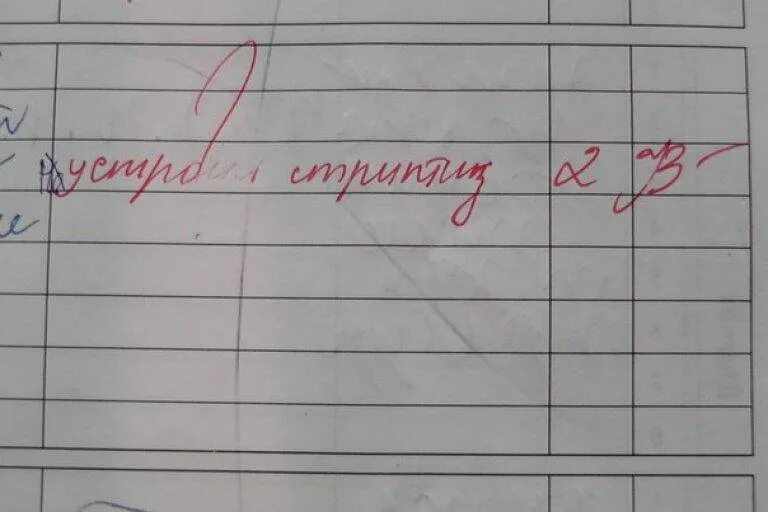 й
устроил стриптиз 2